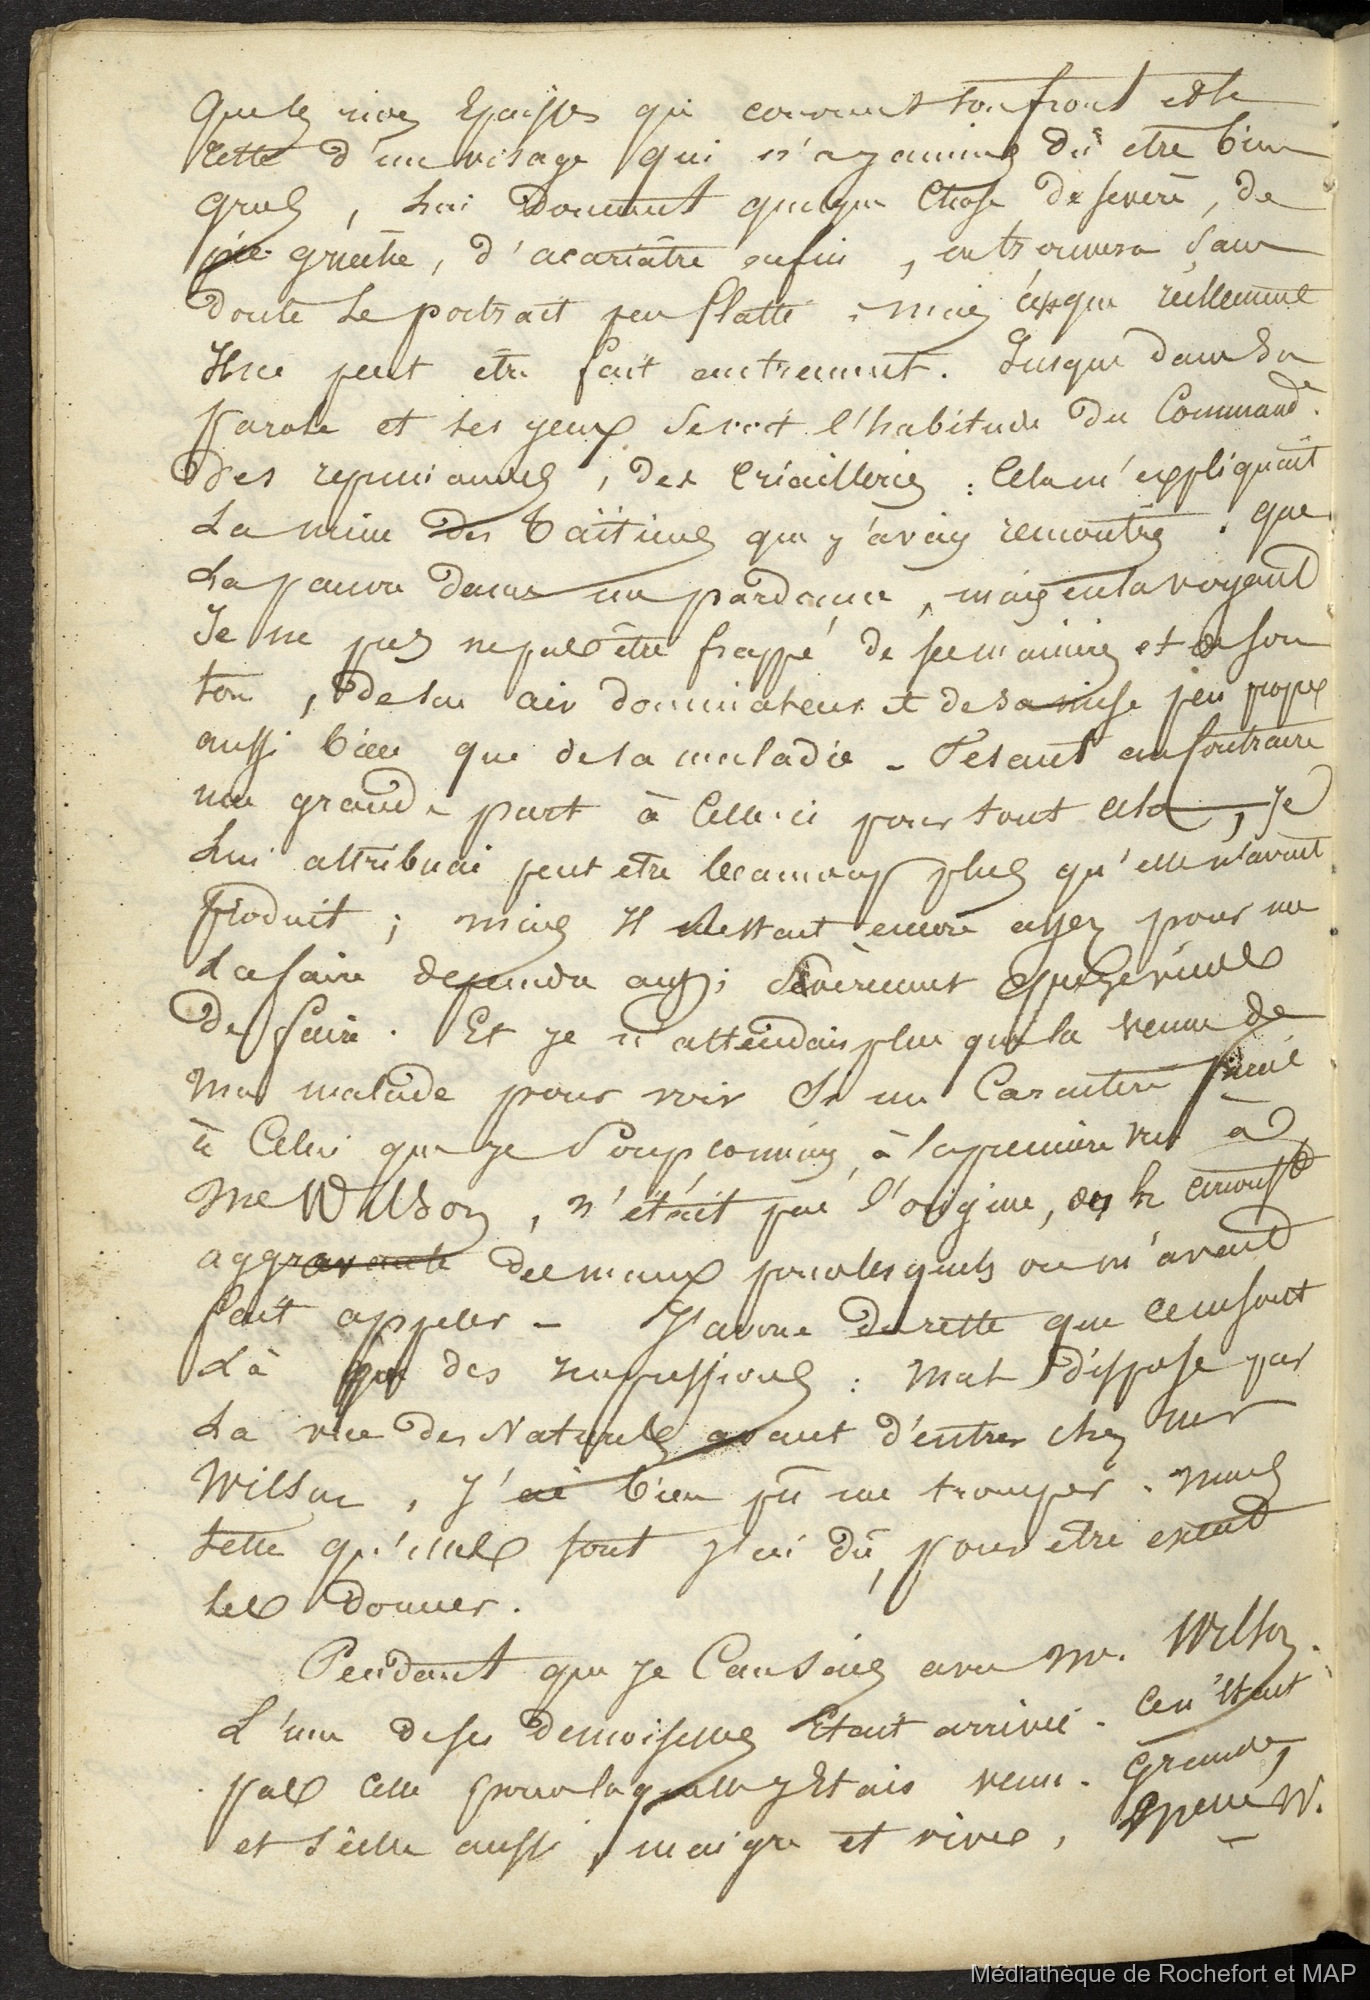 que les rides épaisses qui couvrent son front et le
reste d'un visage qui n'a jamais dû être bien
gras, lui donnent quelque chose de sévère, de
pie grièche, d'acariâtre enfin, on trouvera sans
doute le portrait peu flatté ; mais c'est que réellement
Il ne peut être fait autrement. Jusque dans sa
parole et ses yeux se voit l'habitude du Command.de
des reprimandes, des criailleries : Cela m'expliquait
La mine des Taïtiens que j'avais rencontrés. que
La pauvre dame me pardonne, mais en la voyant
Je ne pus ne pas être frappé de ses manières et de son
ton, de son air dominateur et de sa mise peu propre
aussi bien que de sa maladie - Fesant au contraire
une grande part à Celle-ci pour tout cela, je
Lui attribuai peut être beaucoup plus qu'elle n'avait
produit ; mais Il restait encore assez pour me
La faire dépeindre aussi sévèrement que je viens
de faire. Et je n'attendais plus que la venue de
Ma malade pour voir Si un Caractère pareil
à Celui que je Soupçonnais, à la première vue à
Me Wilson, n'était pas l'origine, ou la circonst.ce
aggravante des maux pour lesquels on m'avait
fait appeler - J'avoue du reste que ce ne sont
Là que des impressions : mal disposé par
La vue des Naturels avant d'entrer chez mr
Wilson, j'ai bien pû me tromper. Mais
telles qu'elles sont j'ai dû, pour être exact
les donner.
Pendant que je Causais avec Mr. Wilson.
L'une de ses demoiselles Etait arrivée. Ce n'était
pas celle pour laquelle j'Etais venu. Grande,
et sèche aussi, maigre et vive, W.